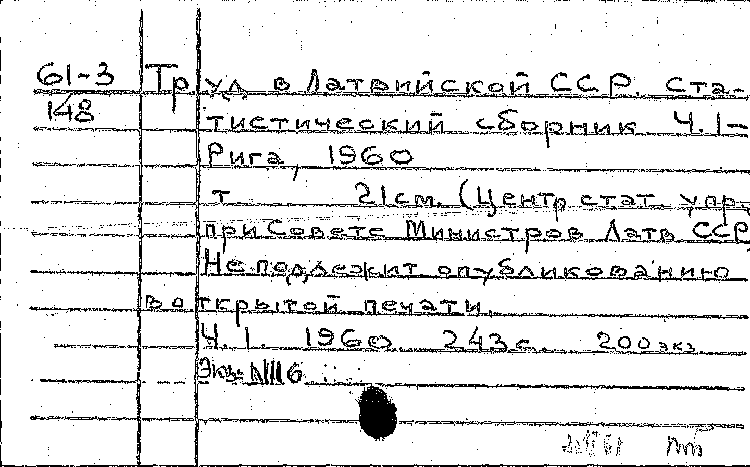 61-3 Труд в Латвийской ССР. Ста-
148 тистический сборник Ч. 1-
Рига, 1960
т 21см. (Центр. стат. упр.
при Совете Министров Латв ССР)
Не подлежит опубликованию
в открытой печати.
Ч. 1. 1960. 243с. 200экз.
Экз. 116